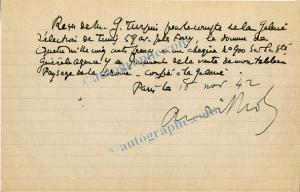 Reçu de Mr G. Turpin pour le compte de la Galerie
Sélection de Tunis 59 av. Jules Ferry, la somme de
Quatre mille cinq cents francs en un chèque No 900 sur la Sté
Générale agence y en paiement de la vente de mon tableau
Paysage de la confié à la galerie
Paris le 18 nov 42
www.autographe.com